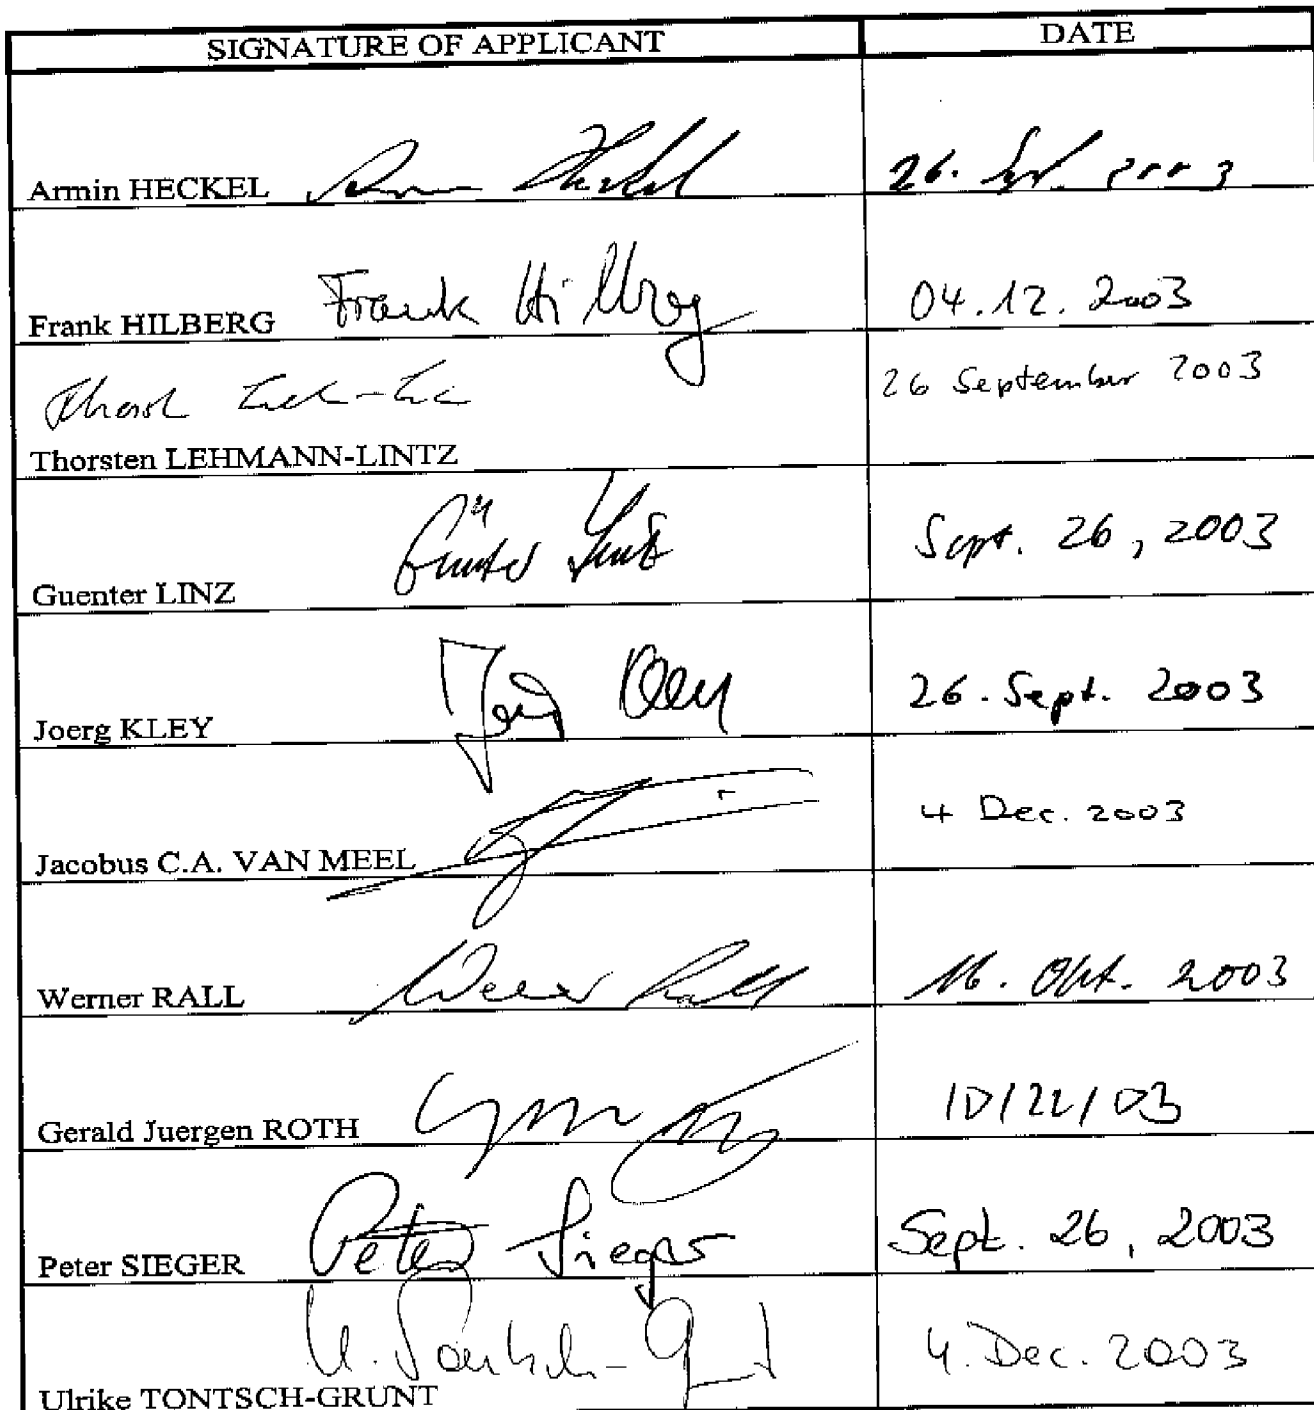 SIGNATURE OF APPLICANT DATE
Armin HECKEL Heckel 26. 2003
Frank HILBERG Frank Hilberg 04.12.2003
26 September 2003
Thorsten LEHMANN-LINTZ
Guenter LINZ Günter Linz Sept. 26, 2003
Joerg KLEY Jörg Kley 26. Sept. 2003
Jacobus C.A. VAN MEEL 4 Dec. 2003
Werner RALL Werner Rall 16. Okt. 2003
Gerald Juergen ROTH 10/22/03
Peter SIEGER Peter Sieger Sept. 26, 2003
Ulrike TONTSCH-GRUNT U. Tontsch-Grunt 4. Dec. 2003